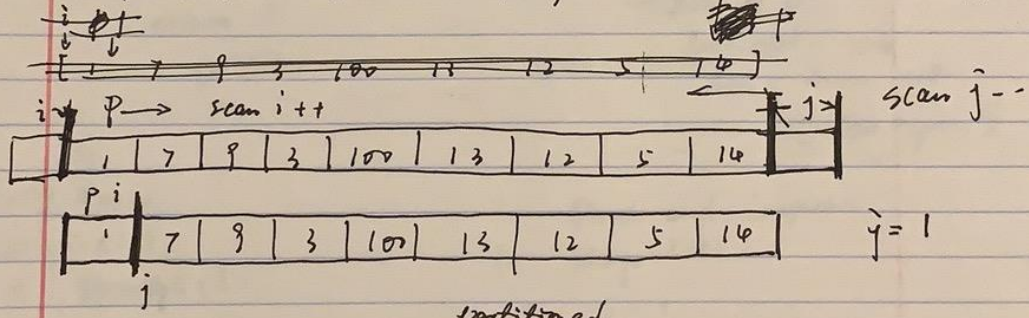 i
[ 1 7 9 3 100 13 12 5 14 ]
i p → scan i++ j scan j--
1 7 9 3 100 13 12 5 14
p i
1 7 9 3 100 13 12 5 14 j = 1
j
partitioned